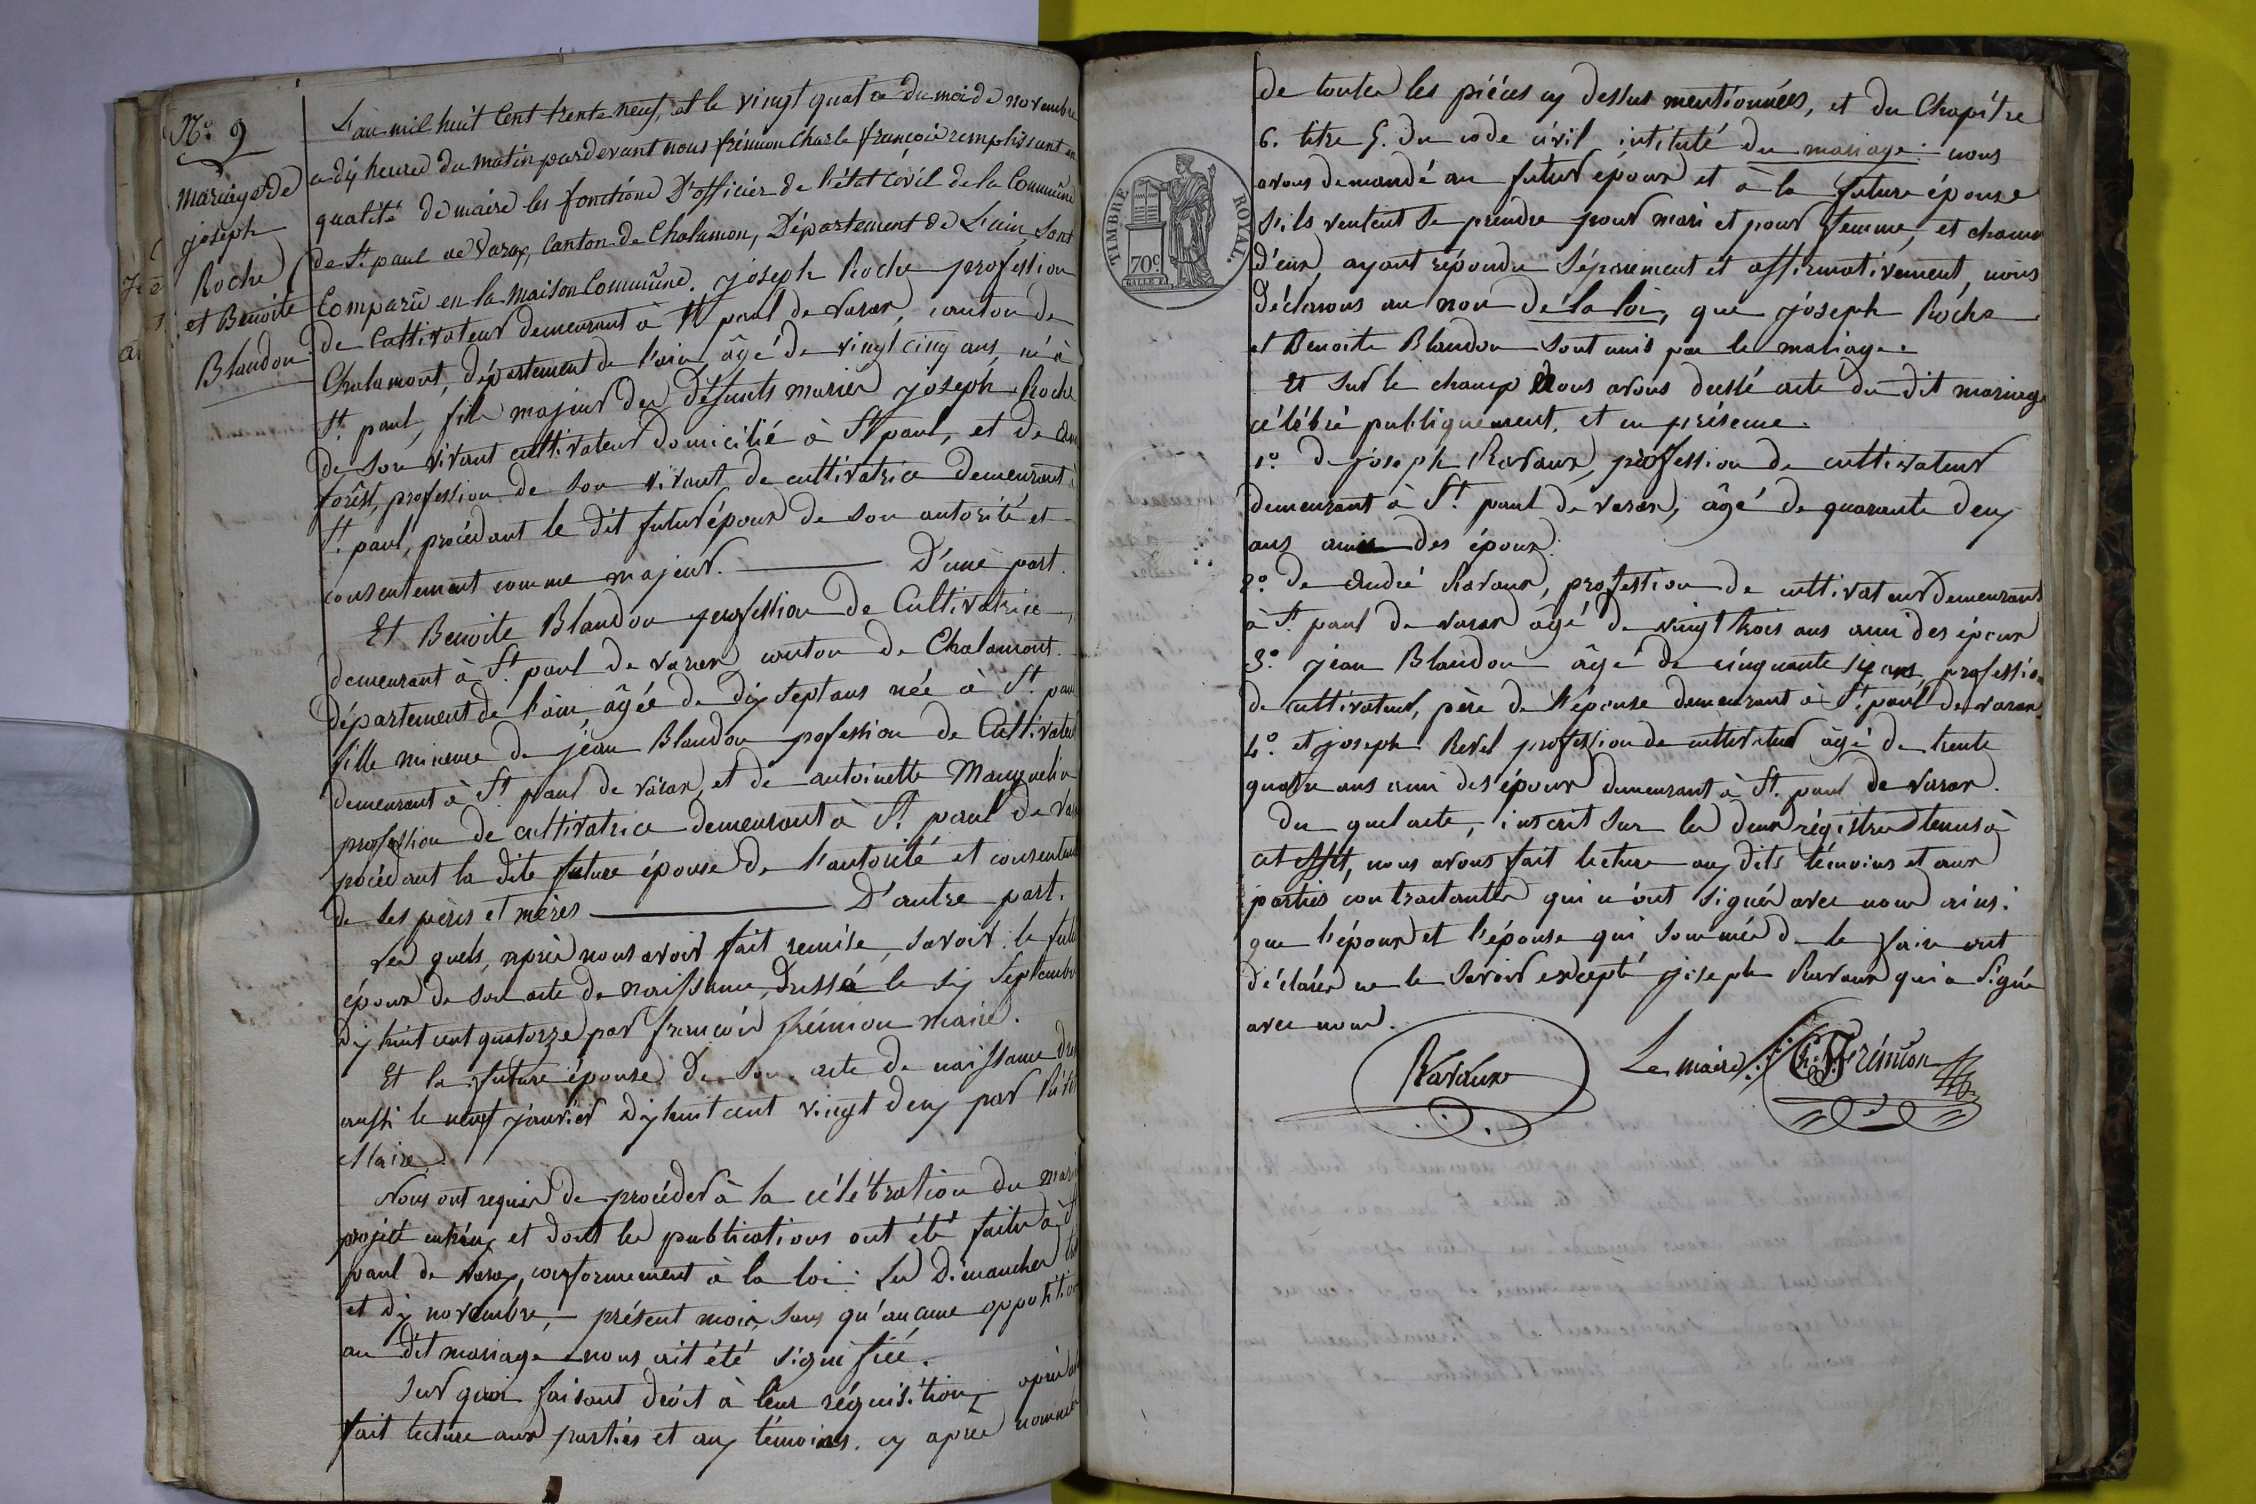 N.o 9
Mariage de
joseph
Roche
et Benoite
Blandon
L'an mil huit Cent trente neuf, et le vingt quatre du moi de novembre
a dix heures du matin pardevant nous frémion Charle françois remplissant en
qualité de maire les fonctions D'officier de l'état Civil de la Commune
de St. paul de Varax, Canton de Chalamon, Département de L'ain, Sont
Comparu en la Maison Commune. joseph Roche profession
de Cultivateur demeurant à St. paul de varax, canton de
Chalamont, département de l'ain, âgé de vingt cinq ans, né à
St. paul, fils majeur des Défunts mariés joseph Roche
de son vivant cultivateur domicilié à St. paul, et de
forêst, profession de son vivant de cultivatrice demeurant à
St. paul, procédant le dit futur époux de son autorité et
consentement comme majeur. D'une part.
Et Benoite Blandon profession de Cultivatrice,
demeurant à St. paul de varax, canton de Chalamont.
département de l'ain, âgée de dix sept ans née à St. paul
fille mineure de jean Blandon profession de Cultivateur
demeurant à St. paul de varax, et de antoinette
profession de cultivatrice demeurant à St. paul de
procédant la dite future épouse de l'autorité et
de ses pères et mères D'autre part.
Les quels, après nous avoir fait remise, savoir: le
époux de son acte de naissance, Dressé le six Septembre
dix huit cent quatorze par françois frémion maire.
Et la future épouse de son acte de naissance
aussi le neuf janvier dix huit cent vingt deux par
Maire.
Nous ont requis de procéder à la célébration du
projeté entr'eux et dont les publications ont été faites à St.
paul de Varax, conformement à la loi: les Dimanches
et dix novembre, présent mois, sans qu'aucune opposition
au dit mariage nous ait été signifiée.
Sur quoi faisant droit à leur réquisition, après
fait lecture aux parties et aux témoins. cy après
de toutes les pièces cy dessus mentionnées, et du Chapitre
6. titre 5. du code civil intitulé du mariage: nous
avons demandé au futur époux et à la future épouse
s'ils veulent se prendre pour mari et pour femme, et chacun
d'eux, ayant répondu séparément et affirmativement, nous
déclarons au nom de la loi, que joseph Roche
et Benoite Blandon sont unis par le mariage.
Et sur le champ Nous avons dressé acte du dit mariage
célébré publiquement, et en présence.
1o. de joseph Ravaux, profession de cultivateur
demeurant à St. paul de varax, âgé de quarante deux
ans ami des époux.
2o. de André Ravaux, profession de cultivateur demeurant
à St. paul de varax âgé de vingt trois ans ami des époux
3o. jean Blandon âgé de cinquante six ans, profession
de cultivateur, père de l'épouse demeurant à St. paul de varax.
4o. et joseph Revel profession de cultivateur âgé de trente
quatre ans ami des époux demeurant à St. paul de varax.
Du quel acte, inscrit sur les deux régistres tenus à
cet effet, nous avons fait lecture aux dits témoins et aux
parties contractantes qui n'ont signés avec nous ainsi
que l'époux et l'épouse qui sommés de le faire ont
déclarés ne le savoir excepté joseph Ravaux qui a signé
avec nous.
Ravaux
Le maire Ch. F. Frémion
TIMBRE ROYAL.
70c.